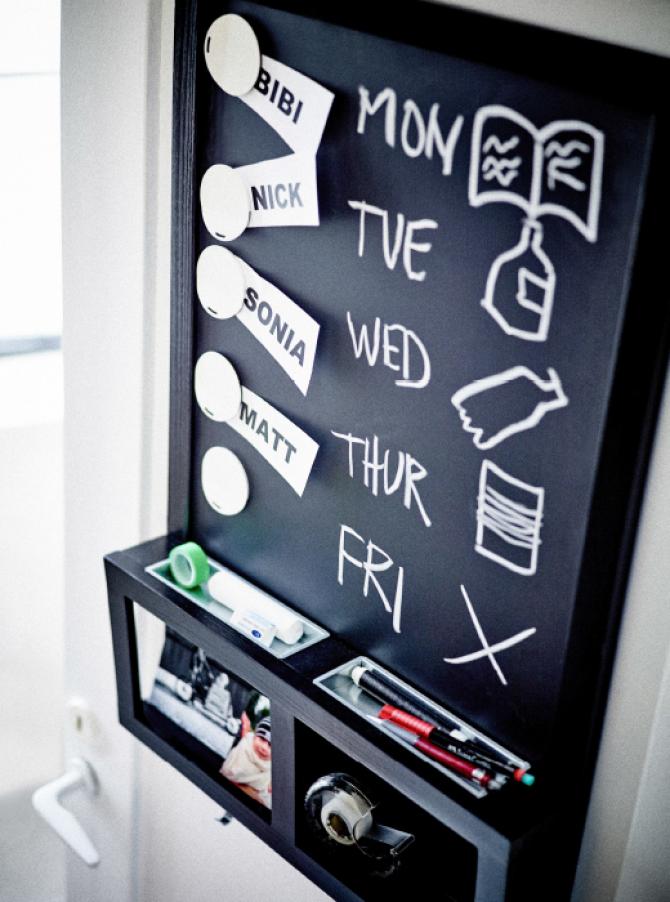 BIBI
MON
NICK
TUE
SONIA
WED
MATT
THUR
FRI